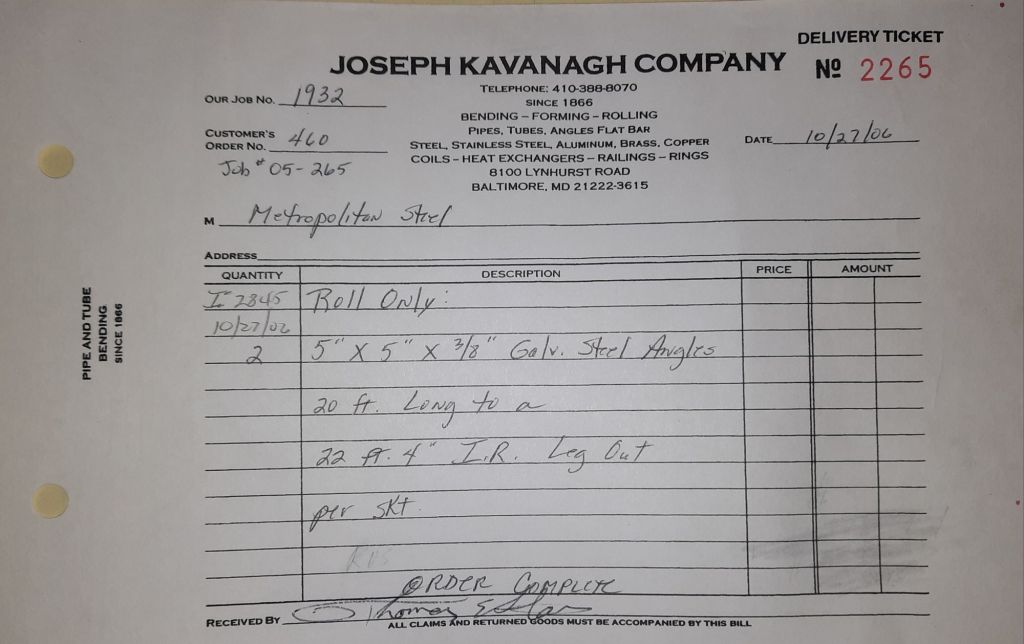 DELIVERY TICKET
JOSEPH KAVANAGH COMPANY
Nº 2265
OUR JOB NO. 1932
TELEPHONE: 410-388-8070
SINCE 1866
BENDING – FORMING – ROLLING
PIPES, TUBES, ANGLES FLAT BAR
CUSTOMER'S
ORDER NO. 460
STEEL, STAINLESS STEEL, ALUMINUM, BRASS, COPPER
DATE 10/27/06
Job # 05-265
COILS – HEAT EXCHANGERS – RAILINGS – RINGS
8100 LYNHURST ROAD
BALTIMORE, MD 21222-3615
M Metropolitan Steel
ADDRESS
QUANTITY DESCRIPTION PRICE AMOUNT
I 2845 Roll Only:
10/27/06
2 5" X 5" X 3/8" Galv. Steel Angles
20 ft. Long to a
22 ft. 4" I.R. Leg Out
per skt.
ORDER COMPLETE
RECEIVED BY Thomas
ALL CLAIMS AND RETURNED GOODS MUST BE ACCOMPANIED BY THIS BILL
PIPE AND TUBE
BENDING
SINCE 1866